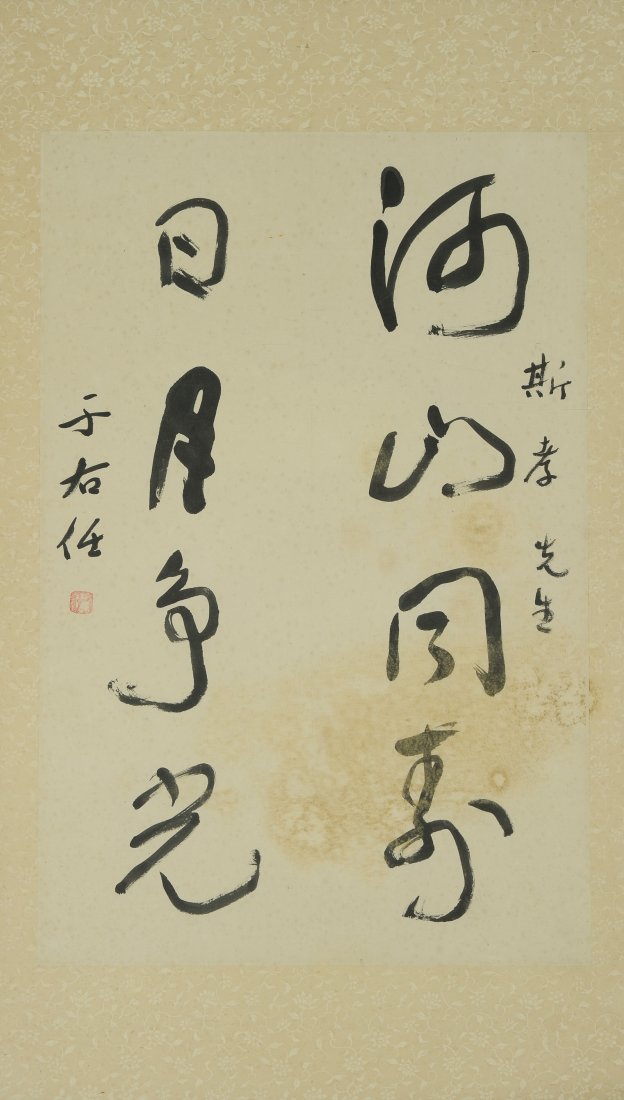 河山同寿
斯孝先生
日月争光
于右任